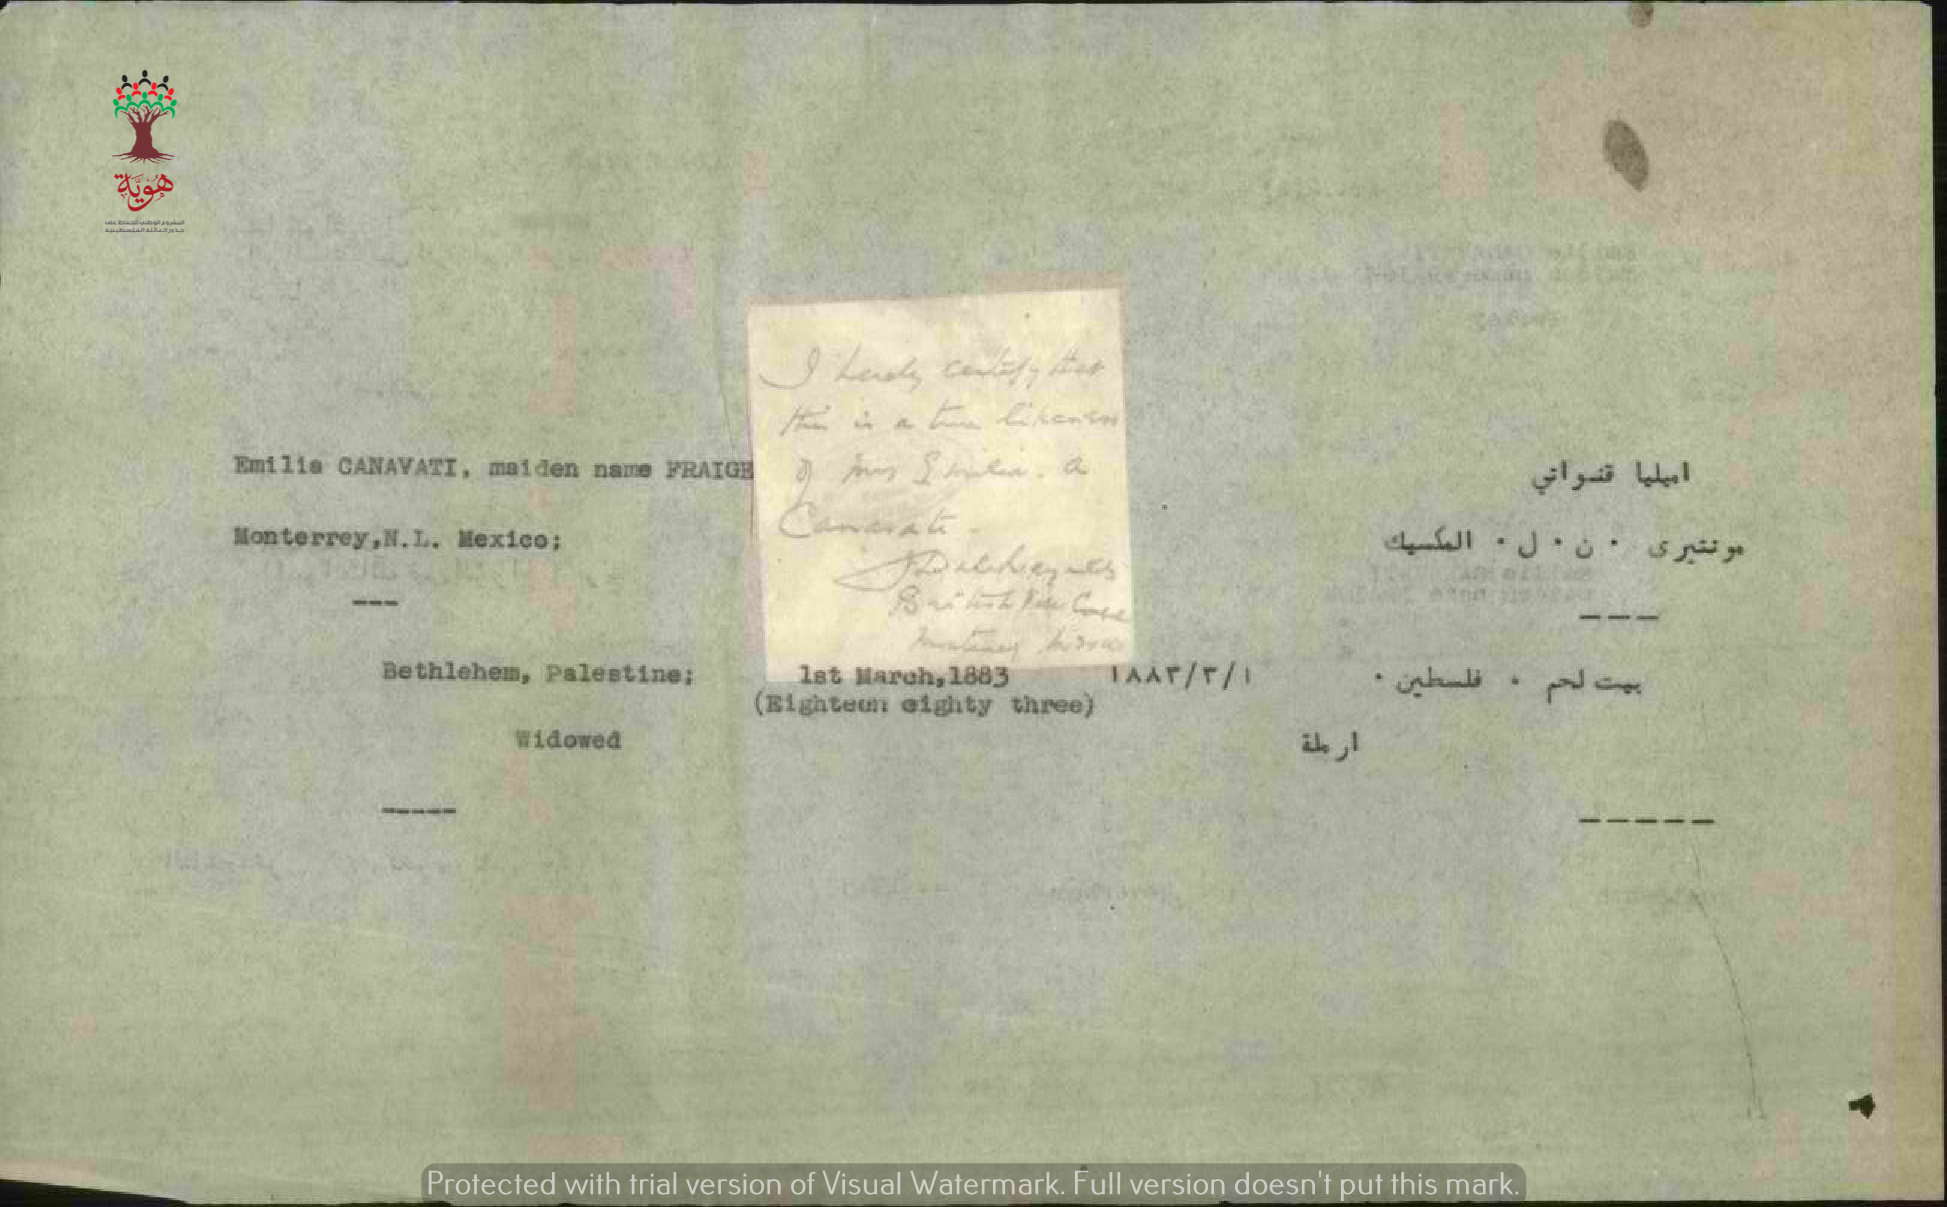 هوية
المشروع الوطني للحفاظ على
جذور العائلة الفلسطينية
I hereby certify that
this is a true likeness
of Mrs Emilia. A
Canavati.
British Vice
Emilia CANAVATI, maiden name FRAIGE
اميليا قنواتي
Monterrey,N.L. Mexico;
مونتيرى . ن . ل . المكسيك
---
---
Bethlehem, Palestine;
1st March,1883
١٨٨٣/٣/١
بيت لحم . فلسطين .
(Eighteen eighty three)
Widowed
ارملة
-----
-----
Protected with trial version of Visual Watermark. Full version doesn't put this mark.